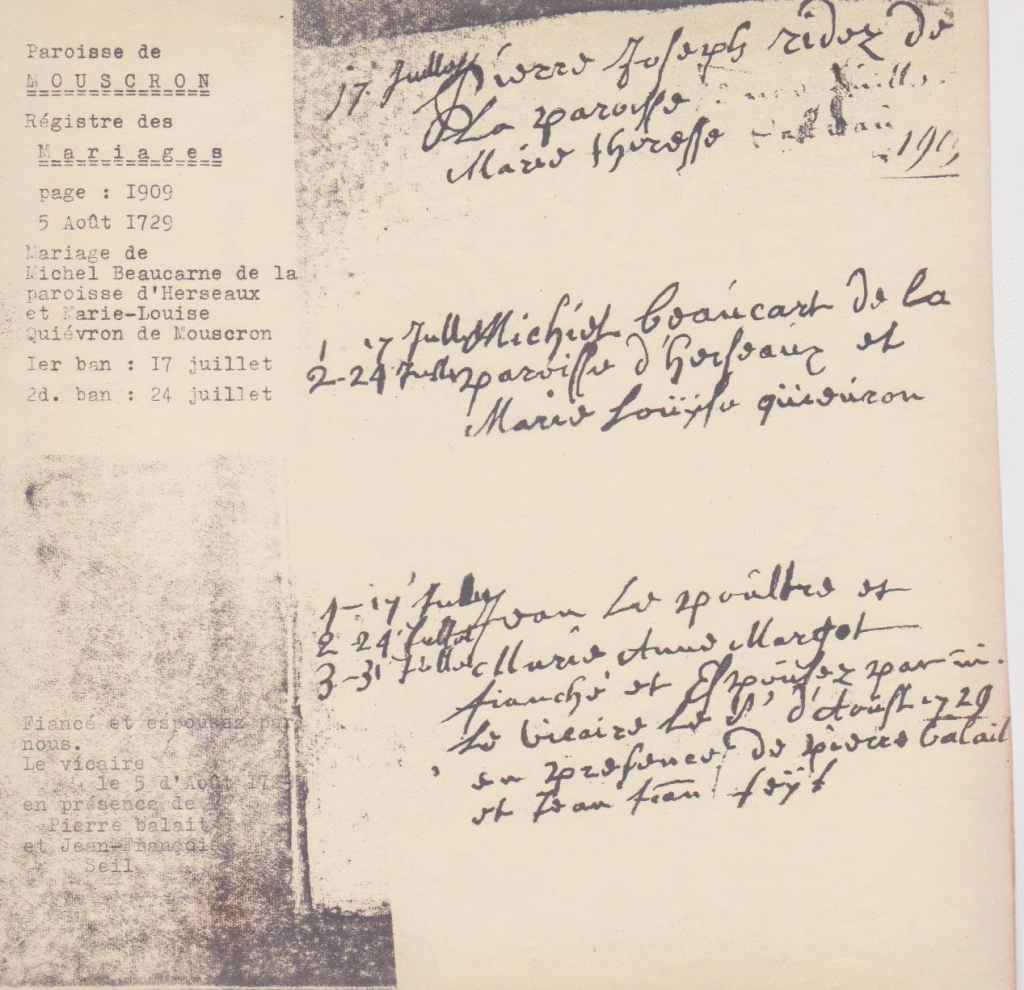 Paroisse de
MOUSCRON
Régistre des
Mariages
page : I909
5 Août I729
Mariage de
Michel Beaucarne de la
paroisse d'Herseaux
et Marie-Louise
Quiévron de Mouscron
Ier ban : I7 juillet
2d. ban : 24 juillet
Fiancé et espousez par
nous.
Le vicaire
le 5 d'Août I729
en présence de
Pierre balait
et Jean-François
Seil
17 Juillet Pierre Joseph ridez de
La paroisse
Marie theresse
190
1 17 Jullet Michiel beaucart de la
2-24 Jullet paroisse d'herseaux et
Marie Loüysse quieuron
1-17 Jullet Jean Le poultre et
2-24 Jullet Marie Anne Margot
3-31 Jullet
fianché et Espousez par
Le vicaire Le 5 d'Aoust 1729
en presence de pierre balail
et Jean